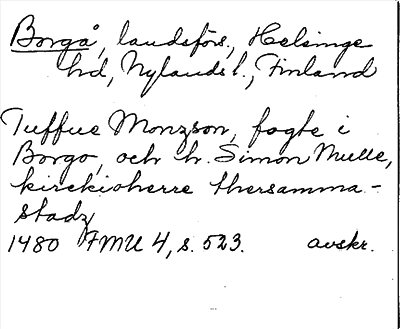 Borgå, landsförs., Helsinge
hd, Nylands l., Finland
Tuffue Monzson, fogte i
Borgo, och h. Simon Mulle,
kirckioherre thersamma-
stadz
1480 FMU 4, s. 523. avskr.